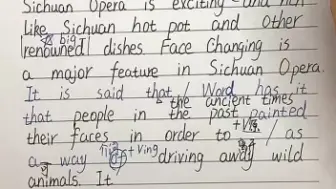 Sichuan Opera is exciting and rich
like Sichuan hot pot and other
big
renowned dishes Face Changing is
a major feature in Sichuan Opera.
It is said that / Word has it
the ancient times
that people in the past painted
their faces in order to +V原 / as
a way of +Ving driving away wild
animals. It